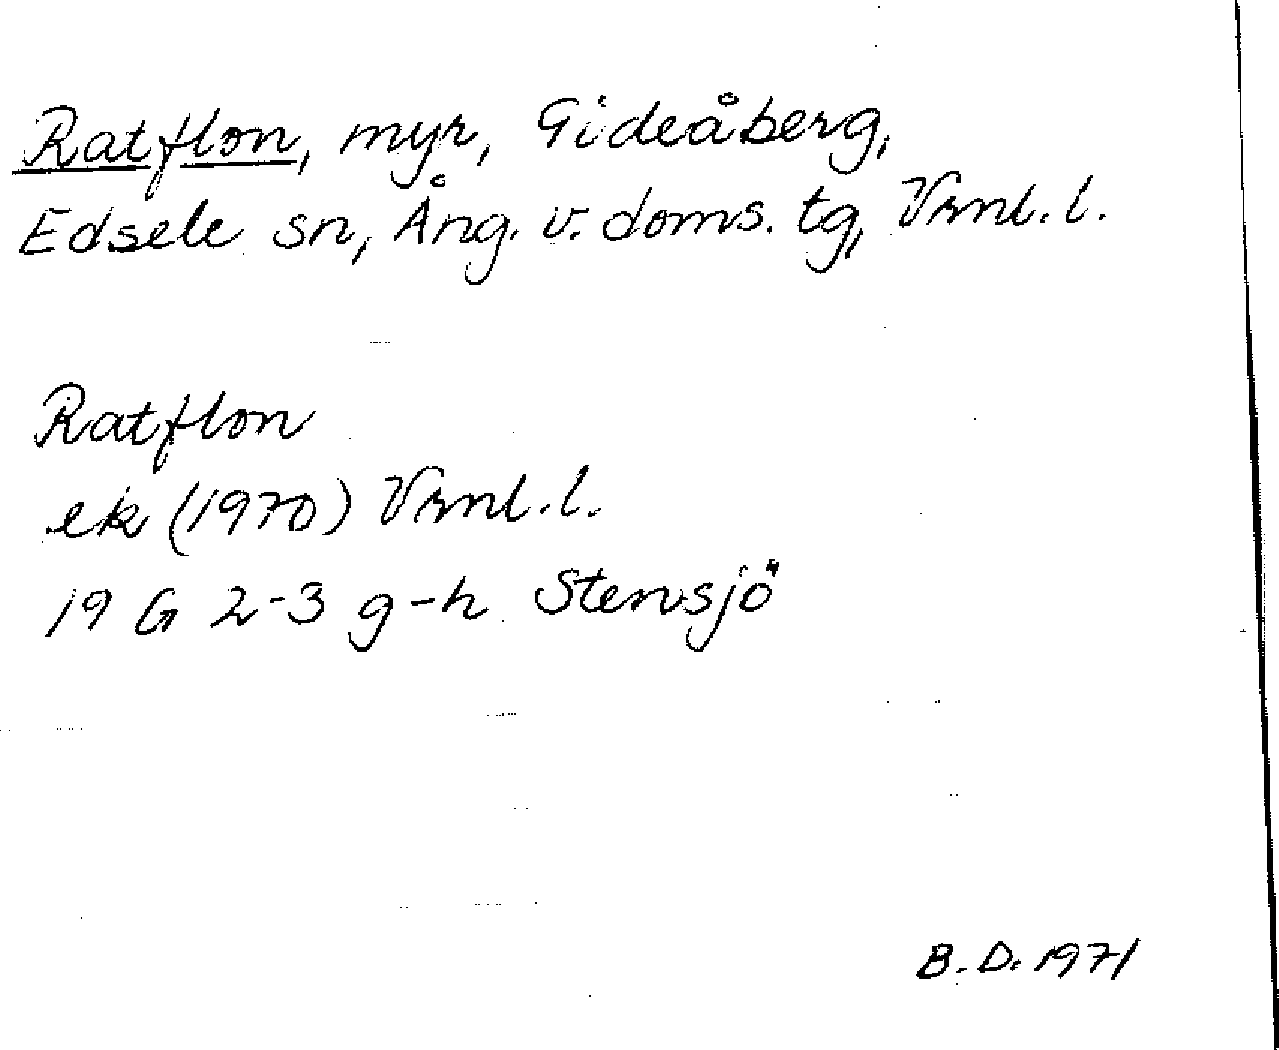 Ratflon, myr, Gideåberg,
Edsele sn, Ång. v. doms. tg, Vrnl. l.
Ratflon
ek (1970) Vrnl. l.
19 G 2-3 g-h Stensjö
B. D. 1971